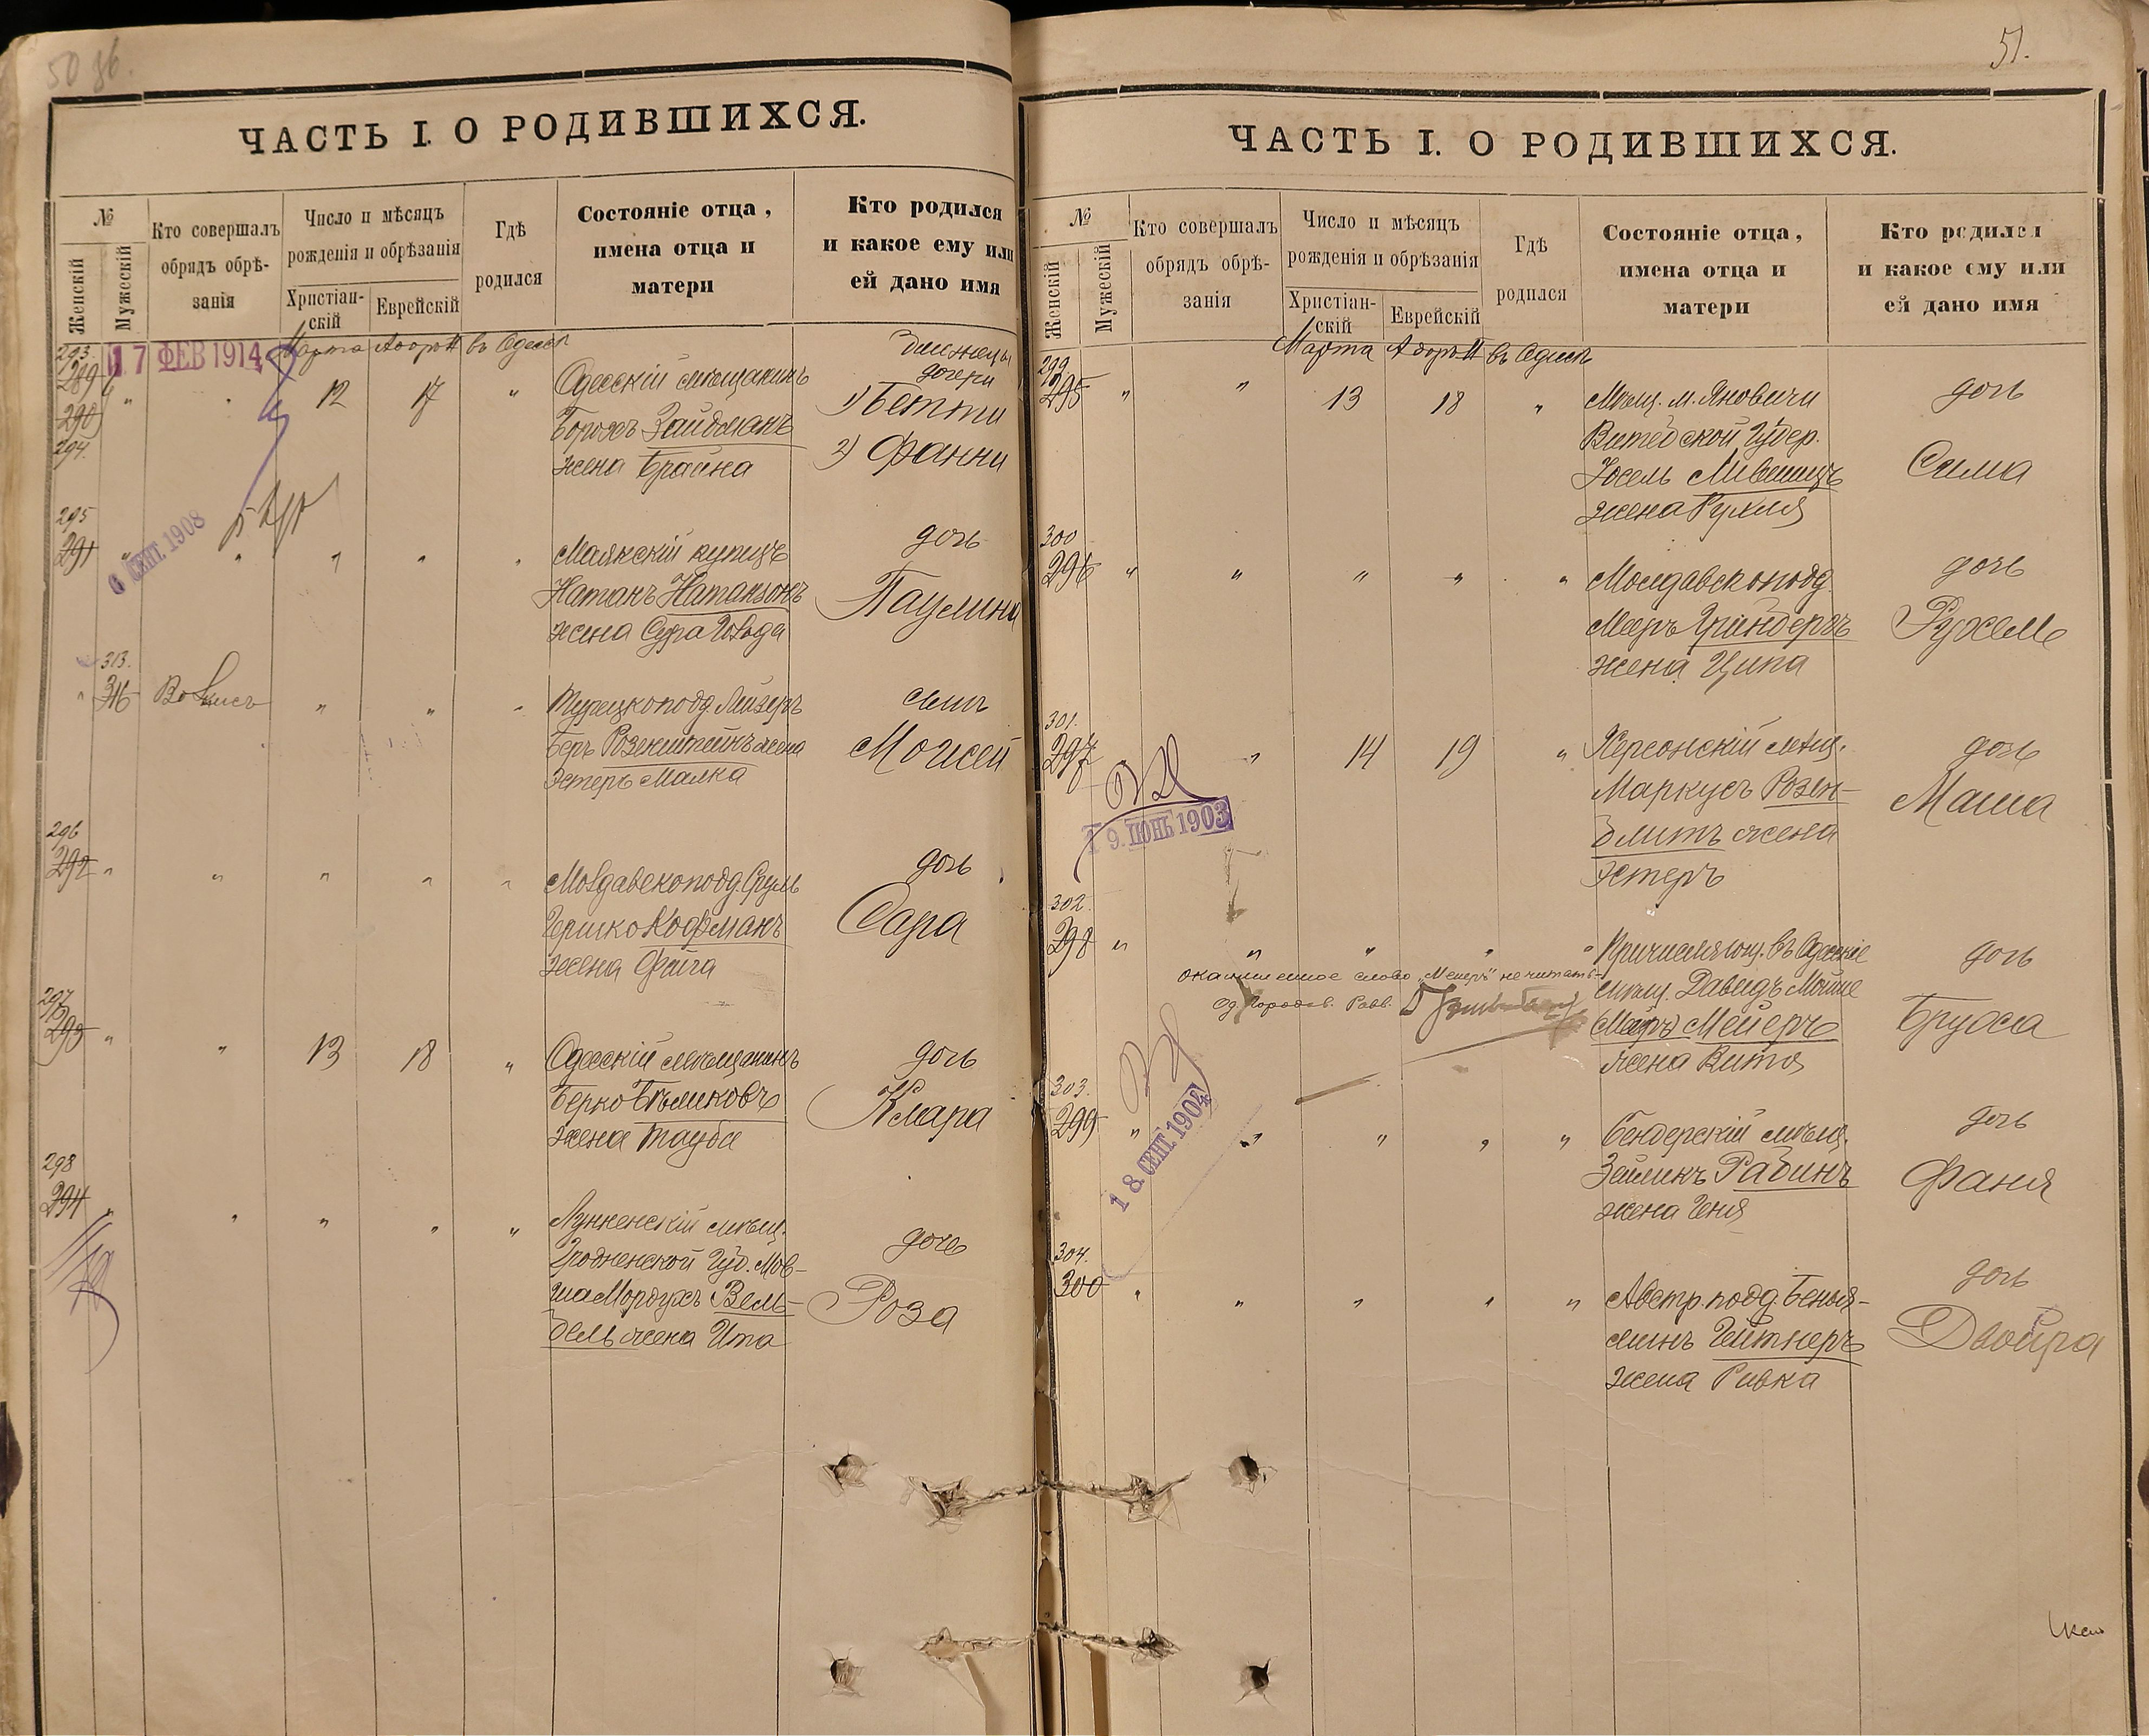 50 об.
ЧАСТЬ I. О РОДИВШИХСЯ.
№
Женскій
Мужескій
Кто совершалъ
обрядъ обрѣ-
занія
Число и мѣсяцъ
рожденія и обрѣзанія
Христіан-
скій
Еврейскій
Гдѣ
родился
Состояніе отца,
имена отца и
матери
Кто родился
и какое ему или
ей дано имя
Марта Адоръ II въ Одессѣ
17 ФЕВ 1914
293.
289
290
294.
" 12 17 "
Одесскій мѣщанинъ
Борохъ Зайдманъ
жена Брайна
близнецы
дочери
1) Бетти
2) Фанни
295
291 " " " " "
6 СЕНТ. 1908
Маякскій купецъ
Натанъ Натанзонъ
жена Сура Гольда
дочь
Паулина
313.
" 316 " " "
Турецкоподд. Лейзеръ
Беръ Розенштейнъ жена
Эстеръ Малка
сынъ
Моисей
296
292 " " " " "
Молдавскоподд. Сруль
Гершко Кофманъ
жена Фейга
дочь
Сара
297
293 " " 13 18 "
Одесскій мѣщанинъ
Берко Бѣликовъ
жена Тауба
дочь
Клара
298
294 " " " " "
мѣщ.
Гродненской Губ. Мов-
ша Мордухъ Вель-
бель жена Ита
дочь
Роза
51.
ЧАСТЬ I. О РОДИВШИХСЯ.
№
Женскій
Мужескій
Кто совершалъ
обрядъ обрѣ-
занія
Число и мѣсяцъ
рожденія и обрѣзанія
Христіан-
скій
Еврейскій
Гдѣ
родился
Состояніе отца,
имена отца и
матери
Кто родился
и какое ему или
ей дано имя
Марта Адоръ II въ Одессѣ
299
295 " " 13 18 "
Мѣщ. м. Яновичи
Витебской Губер.
Іосель Лившицъ
жена Рухля
дочь
Сима
300
296 " " " " "
Молдавскоподд.
Мееръ Гриндергъ
жена Ципа
дочь
Рухель
301.
297 " 14 19 "
19. ІЮНЬ 1903
Херсонскій мѣщ.
Маркусъ Розен-
блитъ жена
Эстеръ
дочь
Маша
302.
298 " " " " "
слово "Мееръ" не читать
Од. Городов. Равв.
Причисляющ. въ Одесскіе
мѣщ. Давидъ Мойше
(Мееръ) Мейеръ
жена Витя
дочь
Бруха
303.
299 " " " " "
18. СЕНТ. 1904
Бендерскій мѣщ.
Зейликъ Рабинъ
жена Геня
дочь
Фаня
304.
300 " " " " "
Австр. подд. Бенья-
минъ Гейтнеръ
жена Ривка
дочь
Двойра